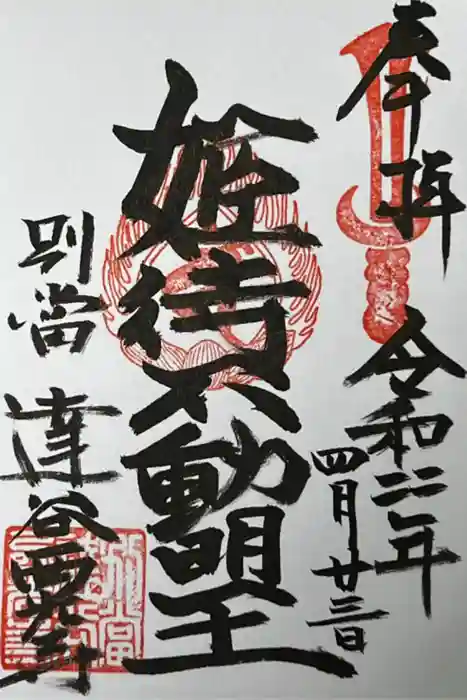 奉拝 令和二年
四月廿三日
姫待不動明王
別當
達谷西光寺